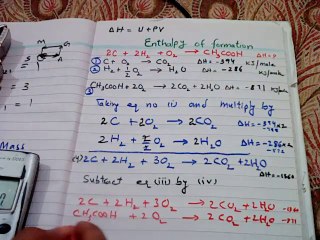 ΔH = U+PV
Enthalpy of formation
2C + 2H2 + O2 → CH3COOH ΔH=?
① C + O2 → CO2 ΔH = -394 KJ/mole
② H2 + ½O2 → H2O ΔH = -286 KJ/mole
③ CH3COOH + 2O2 → 2CO2 + 2H2O ΔH = -871 KJ/mole
Taking eq no iii and multiply by
2C + 2O2 → 2CO2 ΔH = -394x2
2H2 + 2/2 O2 → 2H2O ΔH = -286x2
-572
(4) 2C + 2H2 + 3O2 → 2CO2 + 2H2O ΔH = -1360
Subtract eq (iii) by (iv)
2C + 2H2 + 3O2 → 2CO2 + 2H2O -1360
CH3COOH + 2O2 → 2CO2 + 2H2O -871
M
A
= 3
= 1
Mass